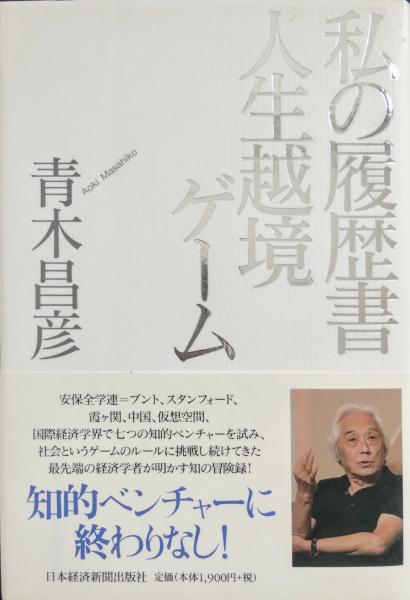 私の履歴書
人生越境
ゲーム
青木昌彦
Aoki Masahiko
安保全学連=ブント、スタンフォード、
霞ヶ関、中国、仮想空間、
国際経済学界で七つの知的ベンチャーを試み、
社会というゲームのルールに挑戦し続けてきた
最先端の経済学者が明かす知の冒険録!
知的ベンチャーに
終わりなし!
日本経済新聞出版社 定価(本体1,900円+税)